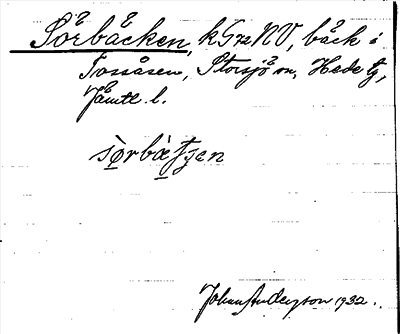 Sörbäcken, kG72NV, bäck i
Tossåsen, Storsjö sn, Hede tg,
Jämtl. l.
sòrbætʃen
Johan Anderzson 1932.